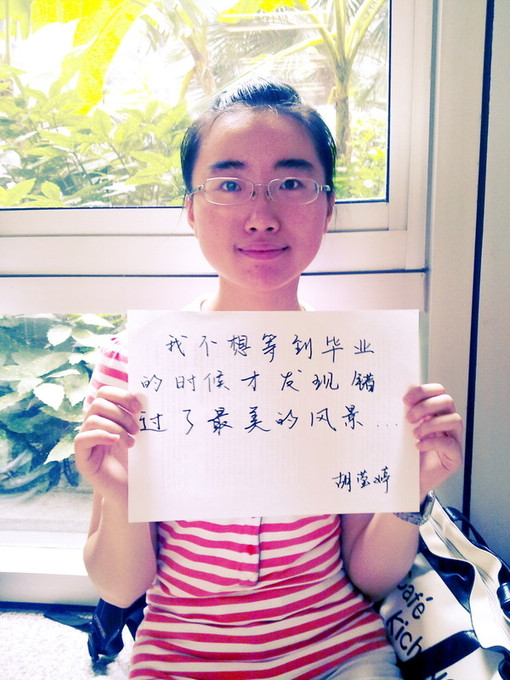 我不想等到毕业
的时候才发现错
过了最美的风景...
胡莹婷
Café
Kich